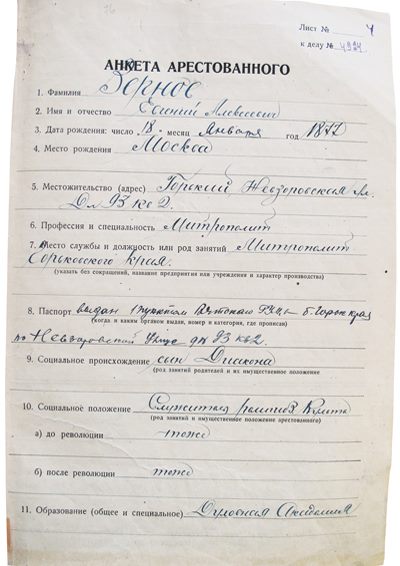 Лист № 4
к делу № 4924
АНКЕТА АРЕСТОВАННОГО
1. Фамилия Зернов
2. Имя и отчество Евгений Алексеевич
3. Дата рождения: число 18. месяц Января год 1877
4. Место рождения Москва
5. Местожительство (адрес) Горький Невзоровская ул.
Д. № 93 кв 2.
6. Профессия и специальность Митрополит
7. Место службы и должность или род занятий Митрополит
Горьковского края.
(указать без сокращений, название предприятия или учреждения и характер производства)
8. Паспорт выдан
(когда и каким органом выдан, номер и категория, где прописан)
по Невзоровской улице д № 93 кв 2.
9. Социальное происхождение сын Диакона
(род занятий родителей и их имущественное положение
10. Социальное положение Служитель религиоз Культа
(род занятий и имущественное положение арестованного)
а) до революции тоже
б) после революции тоже
11. Образование (общее и специальное) Духовная Академия